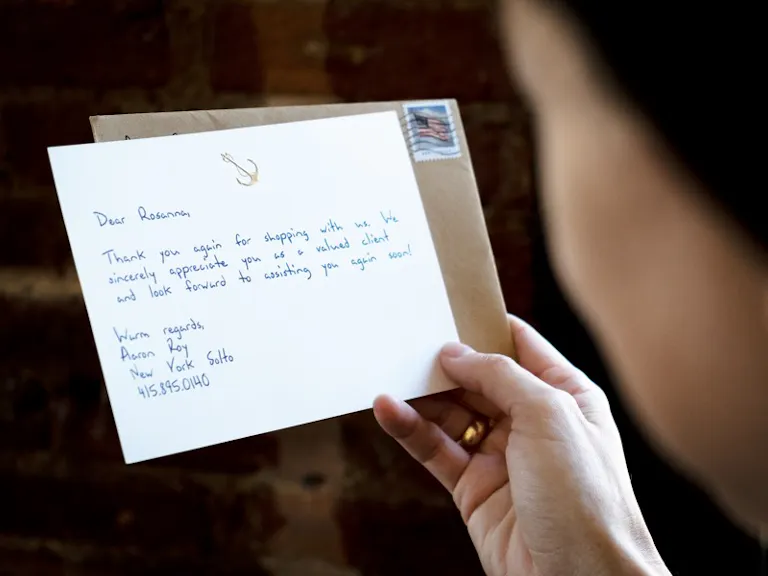 Dear Rosanna,
Thank you again for shopping with us. We
sincerely appreciate you as a valued client
and look forward to assisting you again soon!
Warm regards,
Aaron Roy
New York SoHo
415.895.0140